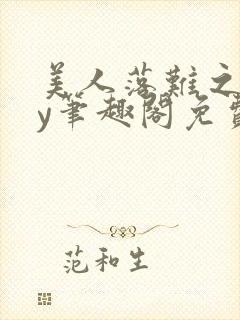 美人落難之
y筆趣閣免費
范和生